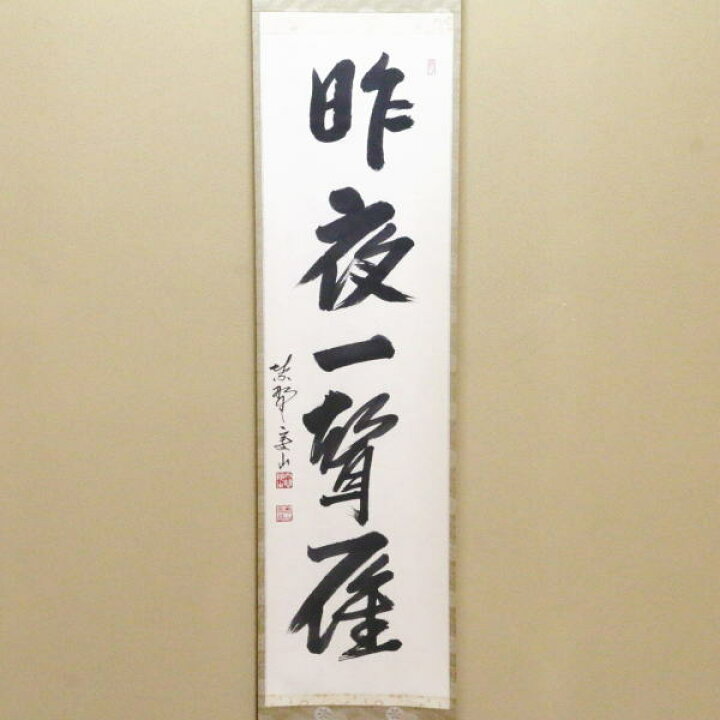 昨夜一聲雁
紫野
山